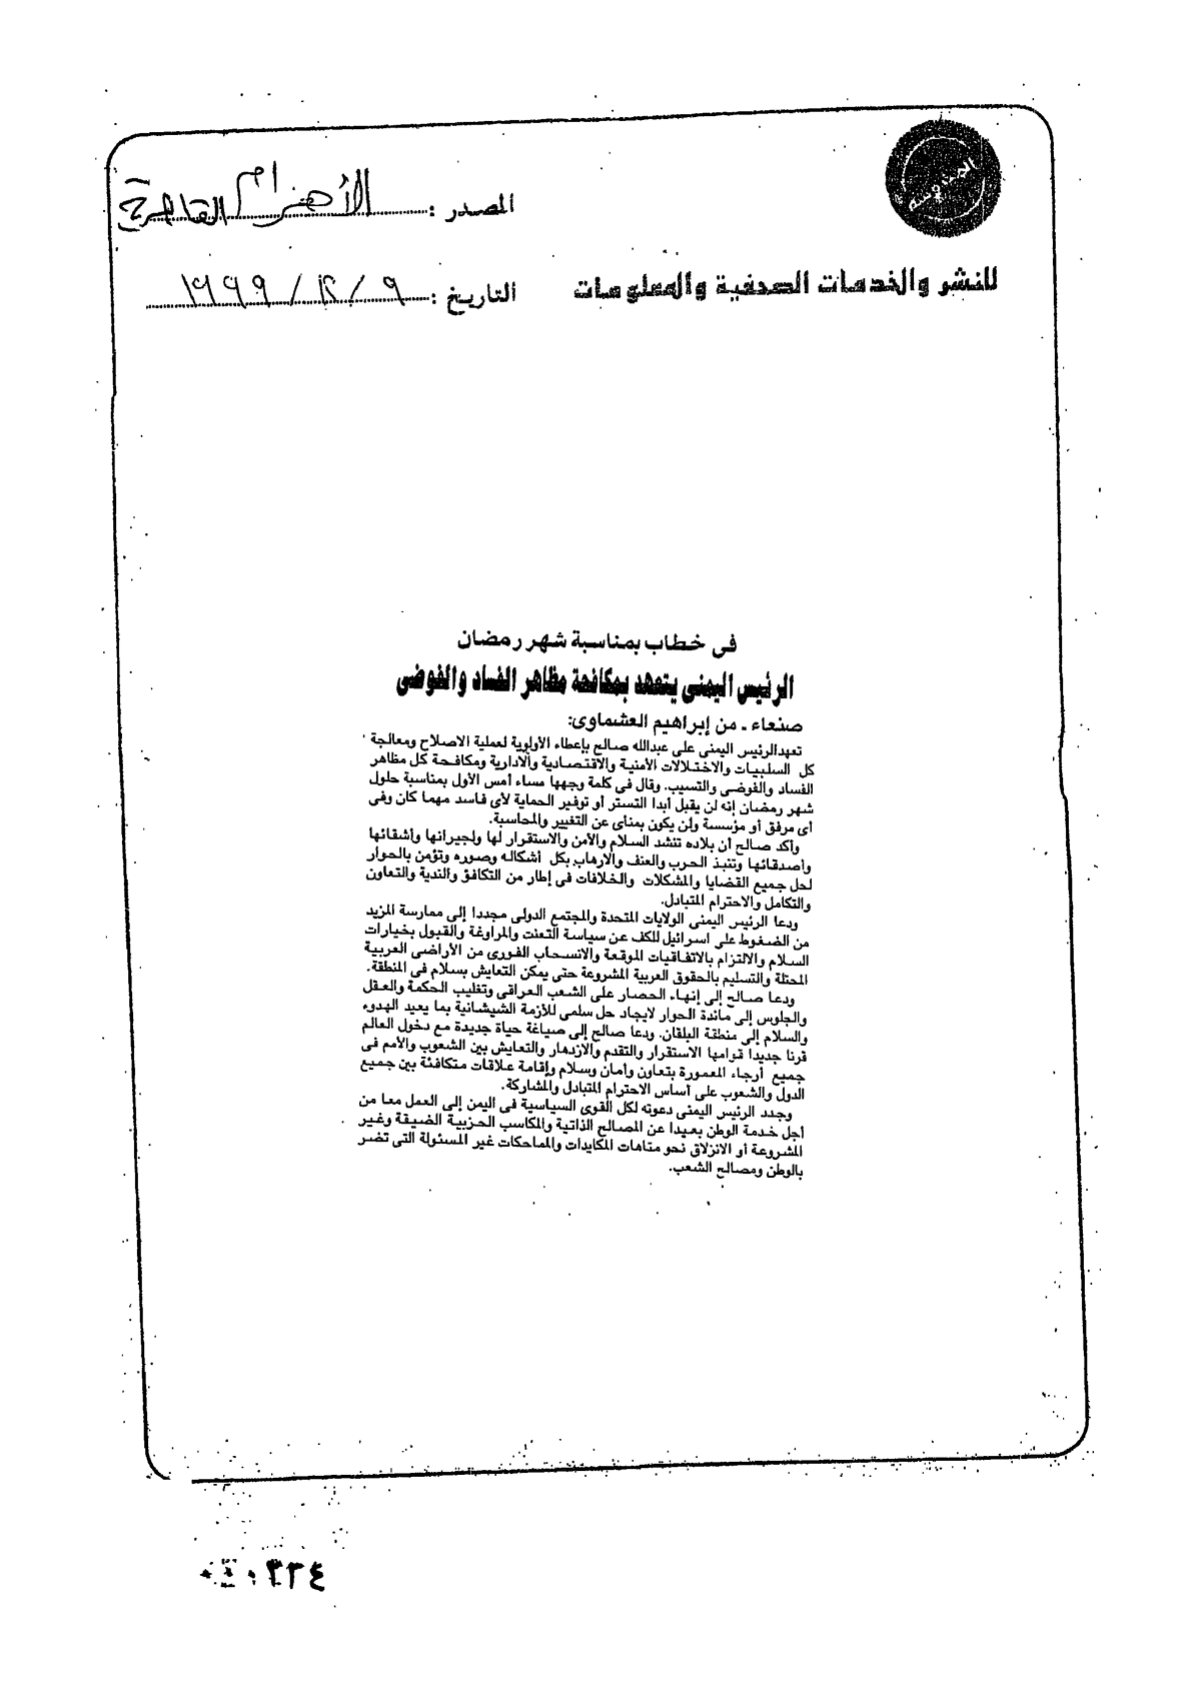 المصدر : الأهرام القاهرة
للنشر والخدمات الصحفية والمعلومات
التاريخ : ٩ / ١٢ / ١٩٩٩
فى خطاب بمناسبة شهر رمضان
الرئيس اليمنى يتعهد بمكافحة مظاهر الفساد والفوضى
صنعاء ـ من إبراهيم العشماوى:
تعهد الرئيس اليمنى على عبدالله صالح بإعطاء الأولوية لعملية الاصلاح ومعالجة
كل السلبيات والاختلالات الأمنية والاقتصادية والادارية ومكافحة كل مظاهر
الفساد والفوضى والتسيب. وقال فى كلمة وجهها مساء أمس الأول بمناسبة حلول
شهر رمضان إنه لن يقبل أبدا التستر أو توفير الحماية لأى فاسد مهما كان وفى
أى مرفق أو مؤسسة ولن يكون بمناى عن التغيير والمحاسبة.
وأكد صالح أن بلاده تنشد السلام والأمن والاستقرار لها ولجيرانها وأشقائها
وأصدقائها وتنبذ الحرب والعنف والارهاب بكل أشكاله وصوره وتؤمن بالحوار
لحل جميع القضايا والمشكلات والخلافات فى إطار من التكافؤ والندية والتعاون
والتكامل والاحترام المتبادل.
ودعا الرئيس اليمنى الولايات المتحدة والمجتمع الدولى مجددا إلى ممارسة المزيد
من الضغوط على اسرائيل للكف عن سياسة التعنت والمراوغة والقبول بخيارات
السلام والالتزام بالاتفاقيات الموقعة والانسحاب الفورى من الأراضى العربية
المحتلة والتسليم بالحقوق العربية المشروعة حتى يمكن التعايش بسلام فى المنطقة.
ودعا صالح إلى إنهاء الحصار على الشعب العراقى وتغليب الحكمة والعقل
والجلوس إلى مائدة الحوار لايجاد حل سلمى للأزمة الشيشانية بما يعيد الهدوء
والسلام إلى منطقة البلقان. ودعا صالح إلى صياغة حياة جديدة مع دخول العالم
قرنا جديدا قوامها الاستقرار والتقدم والازدهار والتعايش بين الشعوب والأمم فى
جميع أرجاء المعمورة بتعاون وأمان وسلام وإقامة علاقات متكافئة بين جميع
الدول والشعوب على أساس الاحترام المتبادل والمشاركة.
وجدد الرئيس اليمنى دعوته لكل القوى السياسية فى اليمن إلى العمل معا من
أجل خدمة الوطن بعيدا عن المصالح الذاتية والمكاسب الحزبية الضيقة وغير
المشروعة أو الانزلاق نحو متاهات المكايدات والمماحكات غير المسئولة التى تضر
بالوطن ومصالح الشعب.